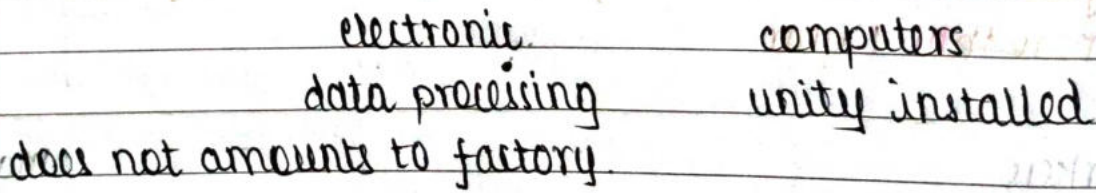 electronic. computers
data processing unity installed
does not amounts to factory.